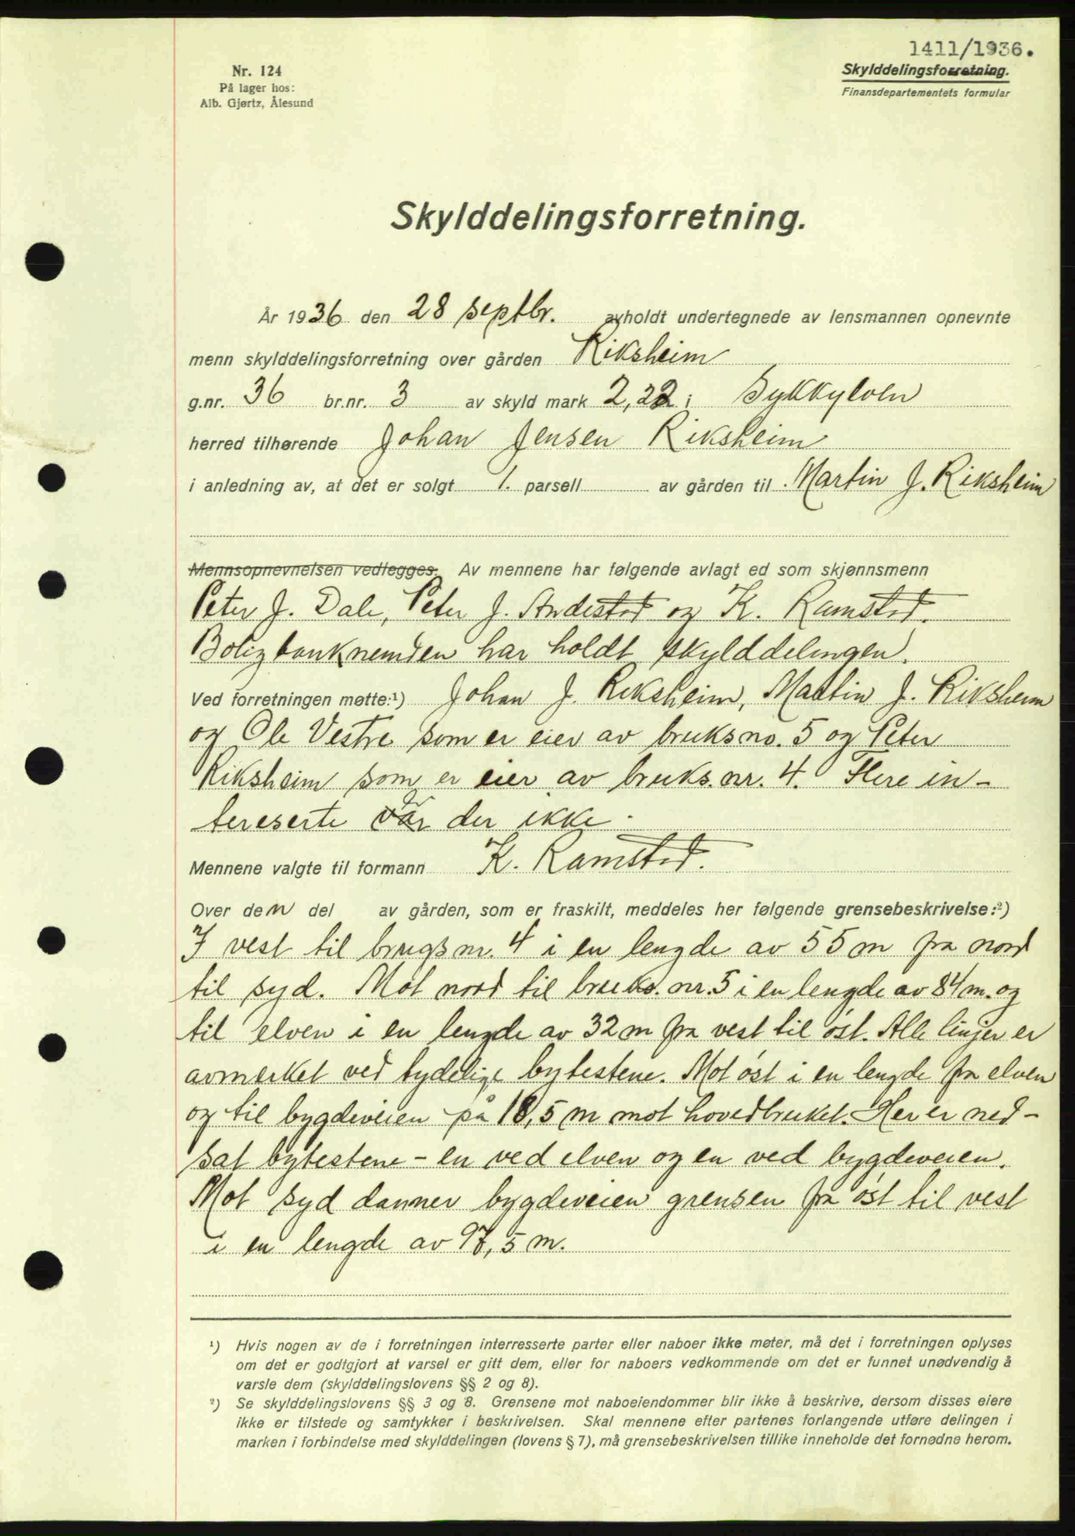 1411/1936.
Nr. 124
På lager hos:
Alb. Gjørtz, Ålesund
Skylddelingsforretning.
Finansdepartementets formular
Skylddelingsforretning.
År 1936 den 28 septbr. avholdt undertegnede av lensmannen opnevnte
menn skylddelingsforretning over gården Riksheim
g.nr. 36 br.nr. 3 av skyld mark 2,22 i Sykkylven
herred tilhørende Johan Jensen Riksheim
i anledning av, at det er solgt 1. parsell av gården til Martin J. Riksheim
Mennsopnevnelsen vedlegges. Av mennene har følgende avlagt ed som skjønnsmenn
Peter J. Dale, Peter J. Andestad og K. Ramstad.
Boligbanknemden har holdt skylddelingen.
Ved forretningen møtte:¹) Johan J. Riksheim, Martin J. Riksheim
og Ole Vestre som er eier av bruksno. 5 og Peter
Riksheim som er eier av bruks.nr. 4. Flere in-
tereserte er der ikke.
Mennene valgte til formann K. Ramstad.
Over den del av gården, som er fraskilt, meddeles her følgende grensebeskrivelse:²)
I vest til brugsnr. 4 i en lengde av 55 m fra nord
til syd. Mot nord til bruks. nr. 5 i en lengde av 84 m. og
til elven i en lengde av 32 m fra vest til øst. Alle linjer er
avmerket ved tydelige bytestene. Mot øst i en lengde fra elven
og til bygdeveien på 18,5 m mot hovedbruket. Her er ned-
sat bytestene - en ved elven og en ved bygdeveien.
Mot syd danner bygdeveien grensen fra øst til vest
i en lengde av 97,5 m.
¹) Hvis nogen av de i forretningen interresserte parter eller naboer ikke møter, må det i forretningen oplyses
om det er godtgjort at varsel er gitt dem, eller for naboers vedkommende om det er funnet unødvendig å
varsle dem (skylddelingslovens §§ 2 og 8).
²) Se skylddelingslovens §§ 3 og 8. Grensene mot naboeiendommer blir ikke å beskrive, dersom disses eiere
ikke er tilstede og samtykker i beskrivelsen. Skal mennene efter partenes forlangende utføre delingen i
marken i forbindelse med skylddelingen (lovens § 7), må grensebeskrivelsen tillike inneholde det fornødne herom.